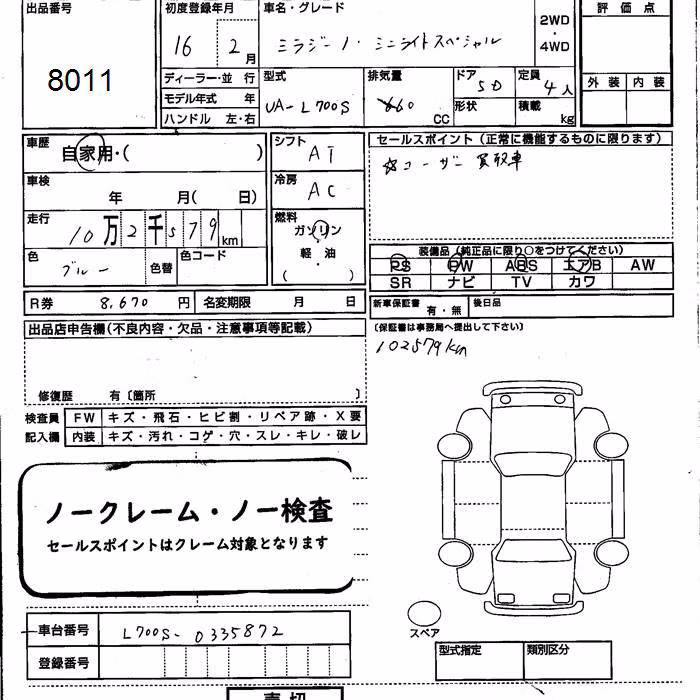 出品番号
8011
初度登録年月
16 2月
車名・グレード
ミラジーノ・ミニライトスペシャル
2WD
・
4WD
評価点
外装 内装
ディーラー・並行
モデル年式 年
ハンドル 左・右
型式
UA-L700S
排気量
660
CC
ドア
5D
形状
定員
4人
積載
kg
車歴
自家用・( )
シフト
AT
車検
年 月( 日)
冷房
AC
走行
10万2千579km
燃料
ガソリン
軽・油
( )
色
ブルー
色替
色コード
R券 8,670円
名変期限 月 日
セールスポイント(正常に機能するものに限ります)
☆ユーザー買取車
装備品(純正品に限り○をつけてください)
PS PW ABS エアB AW
SR ナビ TV カワ
新車保証書
有・無
後日品
(保証書は事務局へ提出して下さい)
102579km
出品店申告欄(不良内容・欠品・注意事項等記載)
修復歴 有〔箇所 〕
検査員
記入欄
FW キズ・飛石・ヒビ割・リペア跡・X要
内装 キズ・汚れ・コゲ・穴・スレ・キレ・破レ
ノークレーム・ノー検査
セールスポイントはクレーム対象となります
車台番号 L700S-0335872
登録番号
スペア
型式指定
類別区分
売切